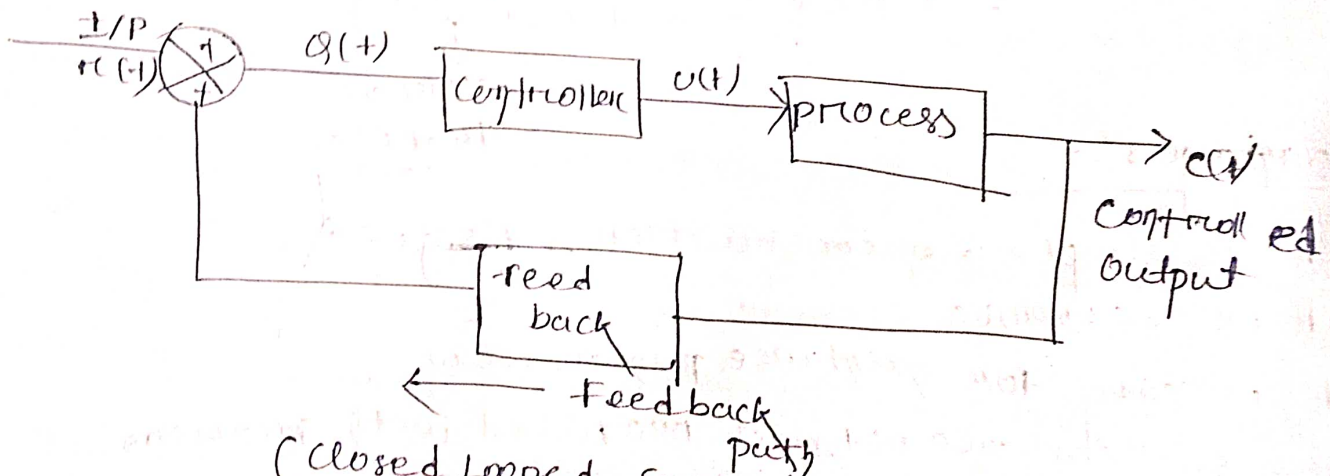 I/P
r(t)
e(t)
controller
u(t)
process
c(t)
controlled
output
feed
back
Feedback
path
(Closed Looped